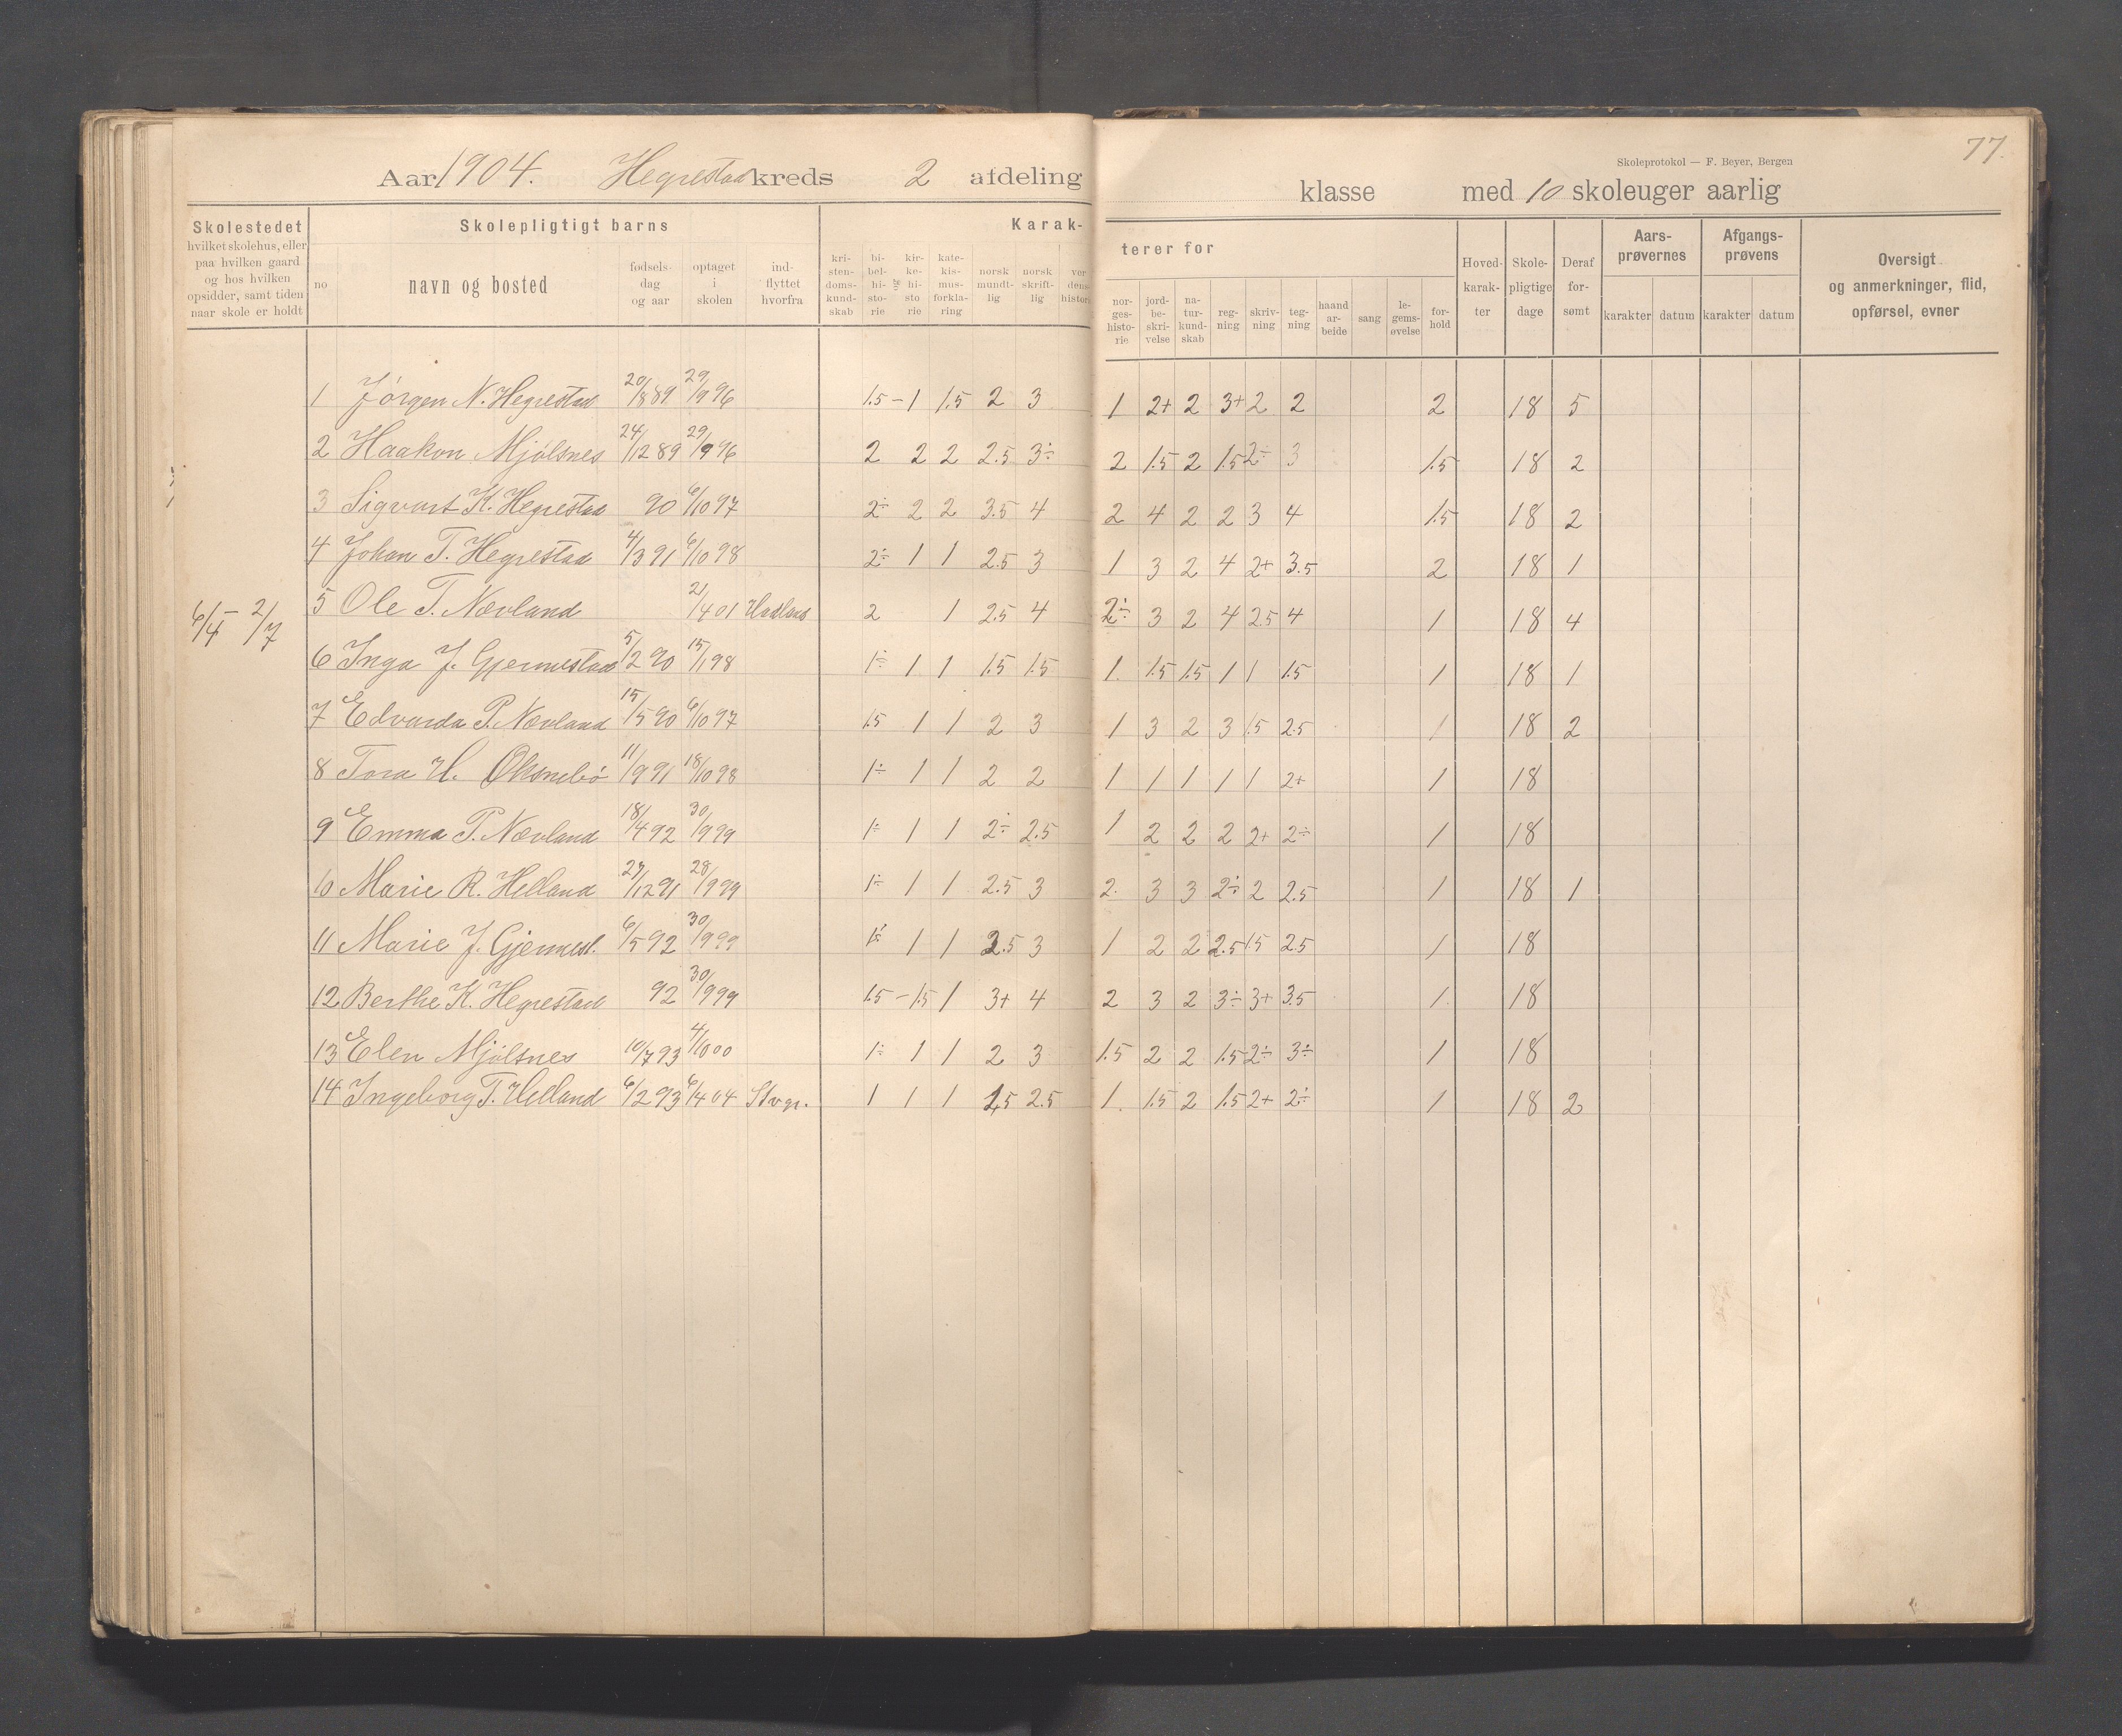 77.
Skoleprotokol — F. Beyer, Bergen
Aar 1904. Hegrestad kreds 2 afdeling klasse med 10 skoleuger aarlig
Skolestedet
hvilket skolehus, eller
paa hvilken gaard
og hos hvilken
opsidder, samt tiden
naar skole er holdt
Skolepligtigt barns
no
navn og bosted
fødsels-
dag
og aar
optaget
i
skolen
ind-
flyttet
hvorfra
Karak-
kri-
sten-
doms-
kund-
skab
bi-
bel-
hi-
sto-
rie
kir-
ke-
hi-
sto
rie
kate-
kis-
mus-
forkla-
ring
norsk
mundt-
lig
norsk
skrift-
lig
ver
dens-
histori
terer for
nor-
ges-
histo-
rie
jord-
be-
skri-
velse
na-
tur-
kund-
skab
reg-
ning
skriv-
ning
teg-
ning
haand
ar-
beide
sang
le-
gems-
øvelse
for-
hold
Hoved-
karak-
ter
Skole-
pligtige
dage
Deraf
for-
sømt
Aars-
prøvernes
karakter datum
Afgangs-
prøvens
karakter datum
Oversigt
og anmerkninger, flid,
opførsel, evner
1 Jörgen N. Hegrestad 20/8 89 29/9 96 1.5 – 1 1.5 2 3 1 2+ 2 3+ 2 2 2 18 5
2 Haakon Mjölsnes 24/12 89 29/9 96 2 2 2 2.5 3÷ 2 1.5 2 1.5 2÷ 3 1.5 18 2
3 Sigvart K. Hegrestad 90 6/10 97 2÷ 2 2 3.5 4 2 4 2 2 3 4 1.5 18 2
4 Johan T. Hegrestad 4/3 91 6/10 98 2÷ 1 1 2.5 3 1 3 2 4 2+ 3.5 2 18 1
6/4 – 2/7
5 Ole T. Nævland 21/4 01 2 1 2.5 4 2÷ 3 2 4 2.5 4 1 18 4
6 Inga J. Gjermestad 5/2 90 15/1 98 1÷ 1 1 1.5 1.5 1. 1.5 1.5 1 1 1.5 1 18 1
7 Edvarda P. Nævland 15/5 90 6/10 97 1.5 1 1 2 3 1 3 2 3 1.5 2.5 1 18 2
8 Tora H. Oksnebö 11/9 91 18/10 98 1÷ 1 1 2 2 1 1 1 1 1 2+ 1 18
9 Emma P. Nævland 18/4 92 30/9 99 1÷ 1 1 2÷ 2.5 1 2 2 2 2+ 2÷ 1 18
10 Marie R. Helland 27/12 91 28/9 99 1÷ 1 1 2.5 3 2. 3 3 2÷ 2 2.5 1 18 1
11 Marie J. Gjermest. 6/5 92 30/9 99 1÷ 1 1 2.5 3 1 2 2 2.5 1.5 2.5 1 18
12 Berthe K. Hegrestad 92 30/9 99 1.5 – 1.5 1 3+ 4 2 3 2 3÷ 3+ 3.5 1. 18
13 Elen Mjölsnes 10/7 93 4/10 00 1÷ 1 1 2 3 1.5 2 2 1.5 2÷ 3÷ 1 18
14 Ingeborg T. Helland 6/2 93 6/4 04 Stvgr. 1 1 1 1.5 2.5 1. 1.5 2 1.5 2+ 2÷ 1 18 2